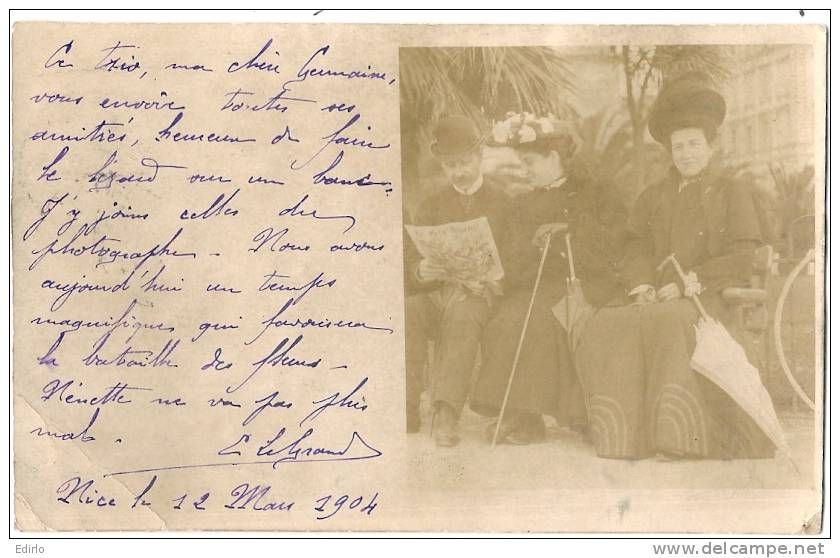 Ce trio, ma chère Germaine,
vous envoie toutes ses
amitiés, heureux de faire
le lézard sur un banc.
J'y joins celles du
photographe - Nous avons
aujourd'hui un temps
magnifique qui favorisera
la bataille des fleurs -
Nénette ne va pas plus
mal -
E LeGrand
Nice le 12 Mars 1904
Edirlo
http://www.delcampe.net